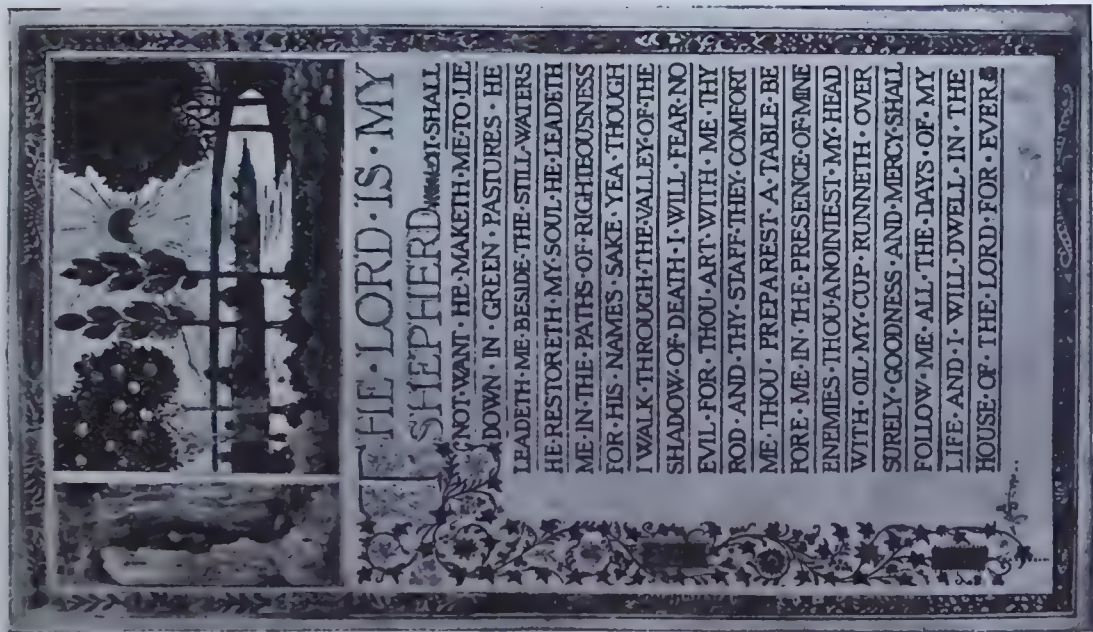 THE·LORD·IS·MY
SHEPHERD I·SHALL
NOT·WANT·HE·MAKETH·ME·TO·LIE
DOWN·IN·GREEN·PASTURES·HE
LEADETH·ME·BESIDE·THE·STILL·WATERS
HE·RESTORETH·MY·SOUL·HE·LEADETH
ME·IN·THE·PATHS·OF·RIGHTEOUSNESS
FOR·HIS·NAMES·SAKE·YEA·THOUGH
I·WALK·THROUGH·THE·VALLEY·OF·THE
SHADOW·OF·DEATH·I·WILL·FEAR·NO
EVIL·FOR·THOU·ART·WITH·ME·THY
ROD·AND·THY·STAFF·THEY·COMFORT
ME·THOU·PREPAREST·A·TABLE·BE
FORE·ME·IN·THE·PRESENCE·OF·MINE
ENEMIES·THOU·ANOINTEST·MY·HEAD
WITH·OIL·MY·CUP·RUNNETH·OVER
SURELY·GOODNESS·AND·MERCY·SHALL
FOLLOW·ME·ALL·THE·DAYS·OF·MY
LIFE·AND·I·WILL·DWELL·IN·THE
HOUSE·OF·THE·LORD·FOR·EVER